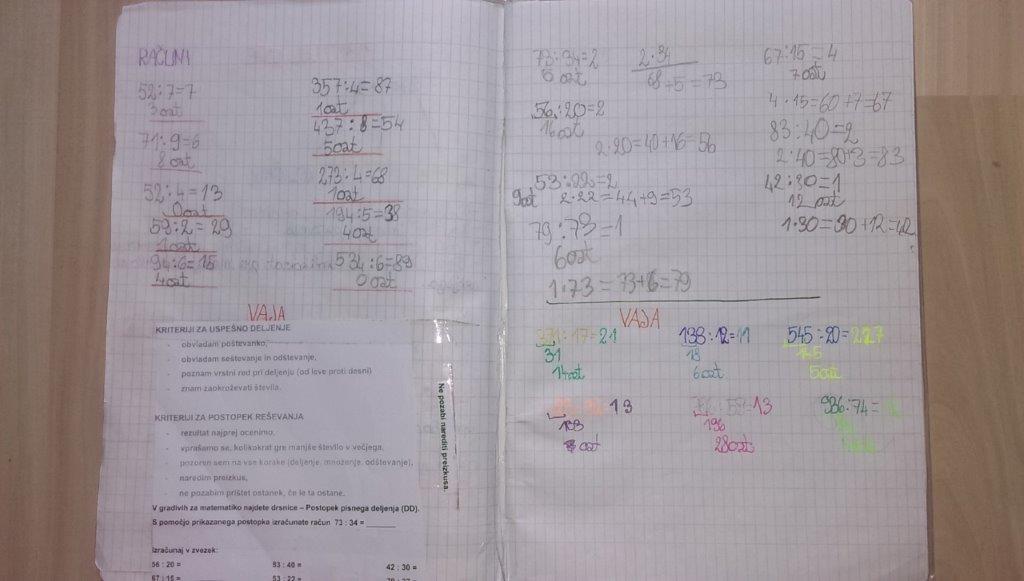 RAČUNI
52:7=7
3ost
71:9=6
8ost
52:4=13
0ost
59:2=29
1ost
94:6=15
4ost
357:4=87
1ost
437:8=54
5ost
273:4=68
1ost
194:5=38
4ost
534:6=89
0ost
VAJA
KRITERIJI ZA USPEŠNO DELJENJE
- obvladam poštevanko,
- obvladam seštevanje in odštevanje,
- poznam vrstni red pri deljenju (od leve proti desni)
- znam zaokroževati števila.
KRITERIJI ZA POSTOPEK REŠEVANJA
- rezultat najprej ocenimo,
- vprašamo se, kolikokrat gre manjše število v večjega,
- pozoren sem na vse korake (deljenje, množenje, odštevanje),
- naredim preizkus,
- ne pozabim prištet ostanek, če le ta ostane.
V gradivih za matematiko najdete drsnice – Postopek pisnega deljenja (DD).
S pomočjo prikazanega postopka izračunate račun 73 : 34 = ______
Izračunaj v zvezek:
56 : 20 = 83 : 40 = 42 : 30 =
67 : 15 = 53 : 22 =
Ne pozabi narediti preizkusa.
73:34=2
5ost
2·34
68+5=73
56:20=2
16ost
2·20=40+16=56
53:22=2
9ost 2·22=44+9=53
79:73=1
6ost
1·73=73+6=79
67:15=4
7ost
4·15=60+7=67
83:40=2
2·40=80+3=83
42:30=1
12ost
1·30=30+12=42
VAJA
371:17=21
31
14ost
138:12=11
18
6ost
545:20=227
145
5ost
13
108
ost
:58=13
196
28ost
986:74=